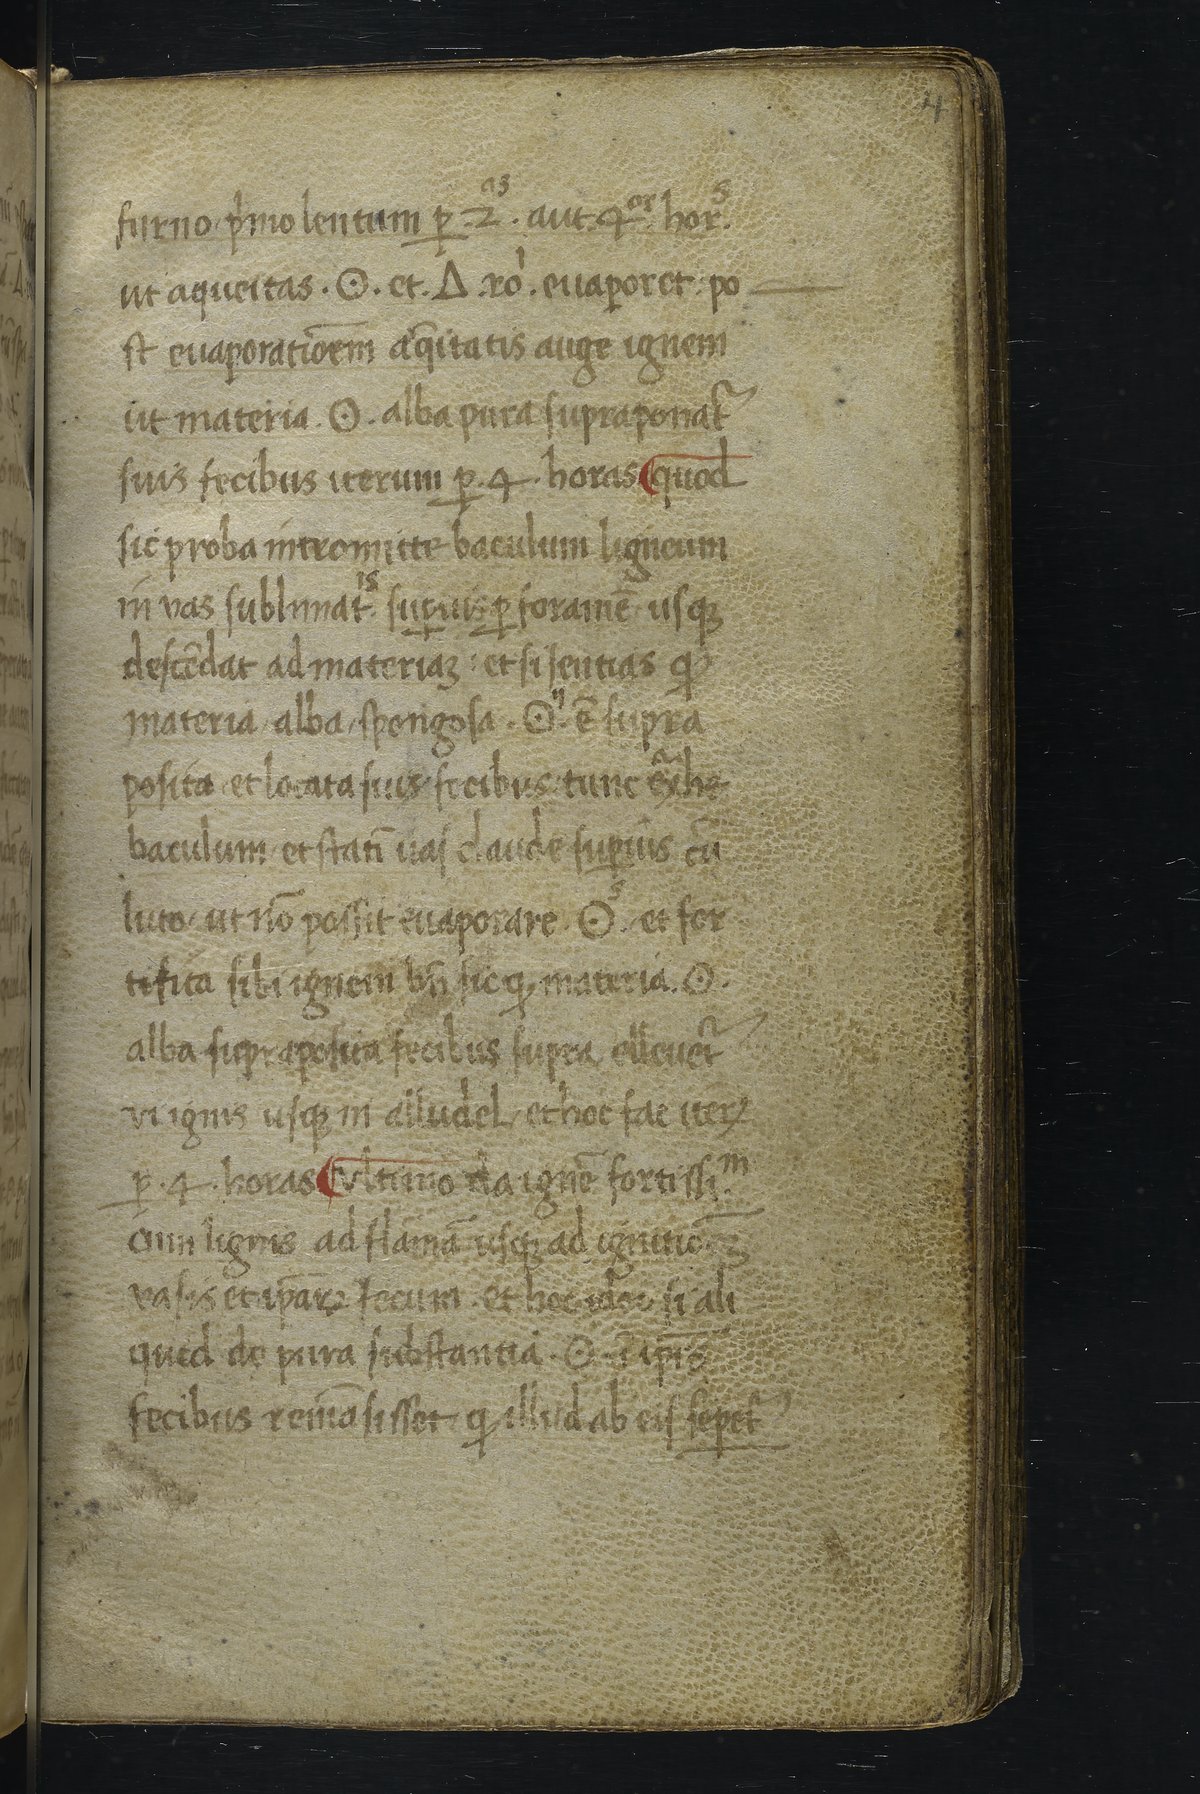 4
furno p'mo lentum p̱ .2.ᵃˢ aut. 4.ᵒʳ horˢ.
ut aqueitas . ☉ . et . Δ . ro' . euaporet : po
st euaporatio͞em aq͞itatis auge ignem
ut materia . ☉ . alba pura supraponat᷑
suis fecibus iterum p̱ . 4 . horas quod
sic proba intromitte baculum ligneum
in vas sublimatⁱˢ. sup̱uis p̱ foramē usqꝫ
descēdat ad materiaꝫ : et si sentias ꝙ
materia / alba / spongosa . ☉ⁱʲ . ē supra
posita / et locata suis fecibus / tunc ex̃he
baculum / et statī uas claude sup̱ius cū
luto / ut nō possit euaporare . ☉ˢ . et for
tifica sibi ignem bn̄ sic ꝙ materia . ☉ .
alba supraposita fecibus supra elleuet᷑
vi ignis usqꝫ in alludel / et hoc fac iterꝝ
p̱ . 4 . horas vltimo da ignē fortissiᵐ.
cum lignis ad flāmā usqꝫ ad ignitioꝫ
vasis et ip̄arꝝ fecum . et hoc ideo si ali
quid de pura substantia . ☉ . ī ip̄is
fecibus remāsisset ꝙ illud ab eis sepet᷑